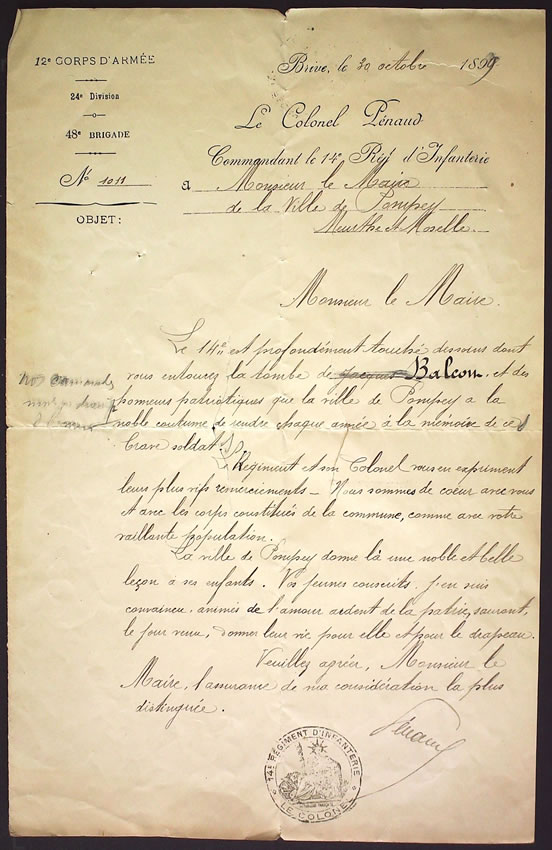 12e CORPS D'ARMÉE
24e Division
48e BRIGADE
No 1011
OBJET:
Brive, le 30 octobre 1899
Le Colonel Pénaud
Commandant le 14e Régt d'Infanterie
a Monsieur le Maire
de la Ville de Pompey
Meurthe et Moselle.
Monsieur le Maire.
Le 14e est profondément touché des soins dont
vous entourez la tombe de Jacques Balcon. et des
honneurs patriotiques que la ville de Pompey a la
noble coutume de rendre chaque année à la mémoire de ce
brave soldat.
Régiment et son Colonel vous en expriment
leurs plus vifs remerciements – Nous sommes de coeur avec vous
et avec les corps constitués de la commune, comme avec votre
vaillante population.
La ville de Pompey donne là une noble et belle
leçon à ses enfants. Vos jeunes conscrits, j'en suis
convaincu, animés de l'amour ardent de la patrie, sauront,
le jour venu, donner leur vie pour elle et pour le drapeau.
Veuillez agréer, Monsieur le
Maire, l'assurance de ma considération la plus
distinguée.
Pénaud
14e REGIMENT D'INFANTERIE
LE COLONEL